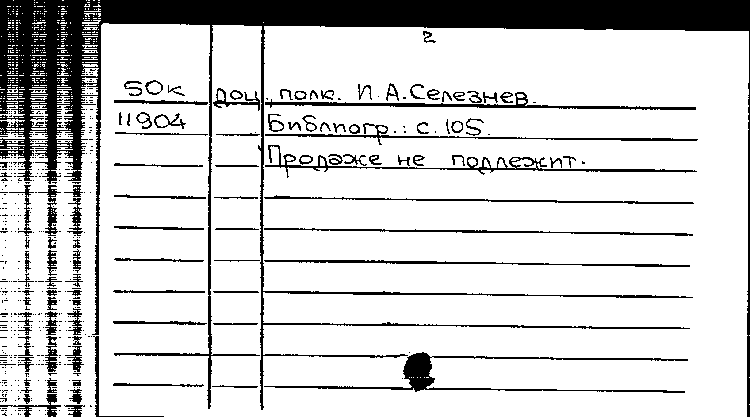 2
50к доц., полк. И.А.Селезнев.
11904 Библиогр.: с. 105.
Продаже не подлежит.